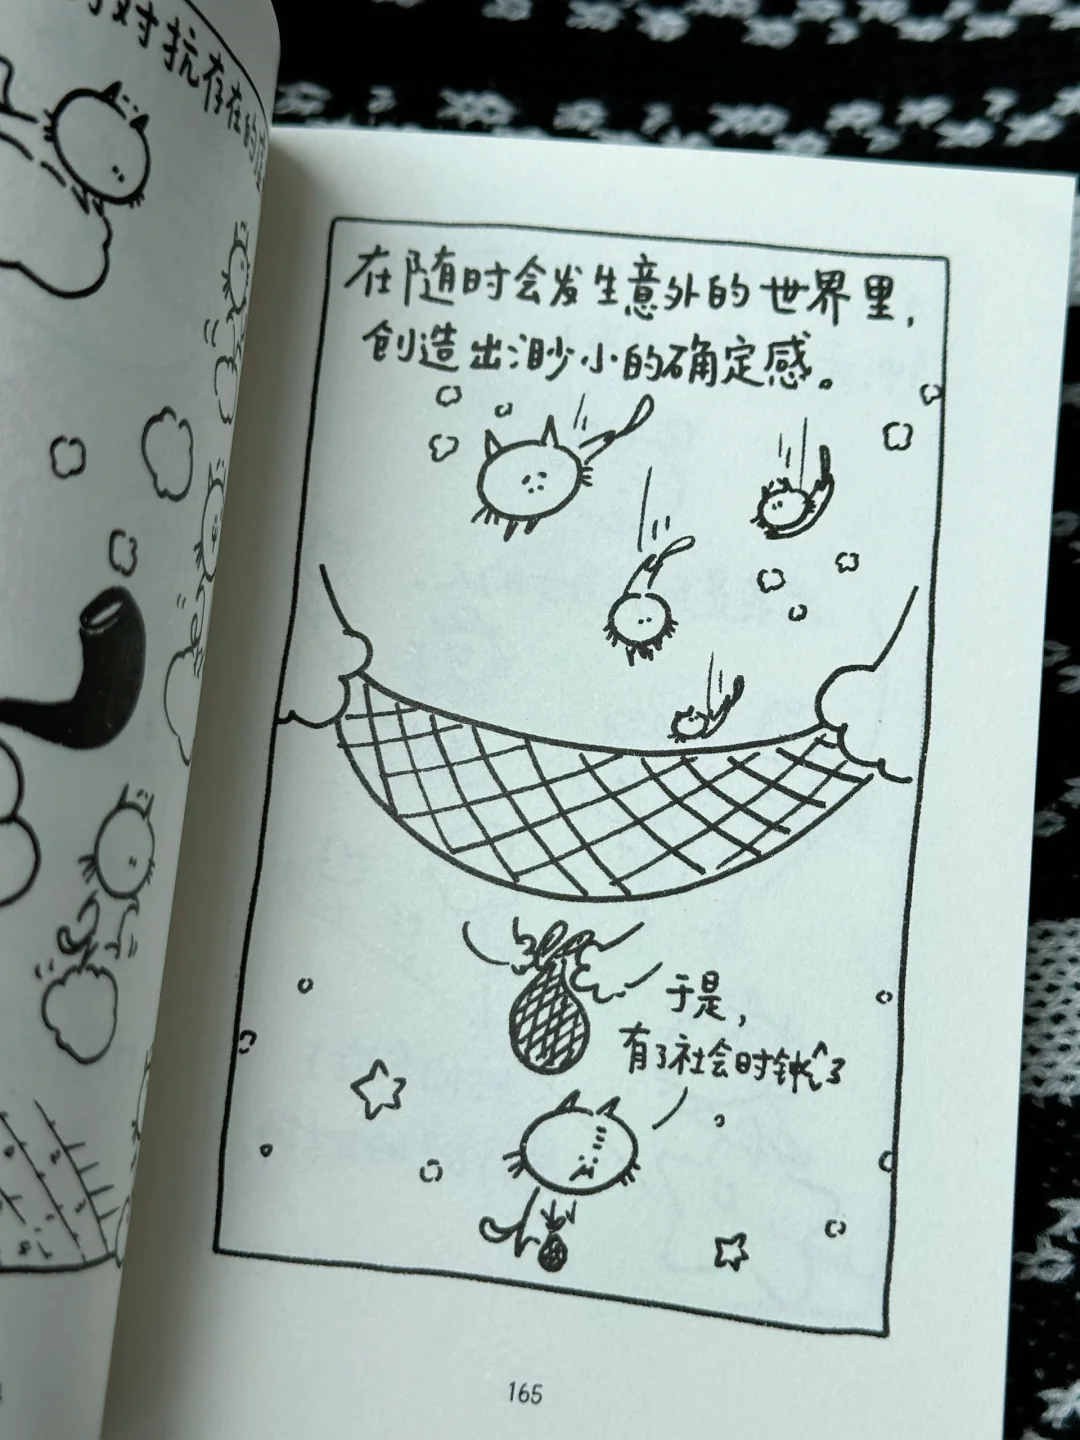 对抗存在的
在随时会发生意外的世界里，
创造出渺小的确定感。
于是，
有了社会时钟
165